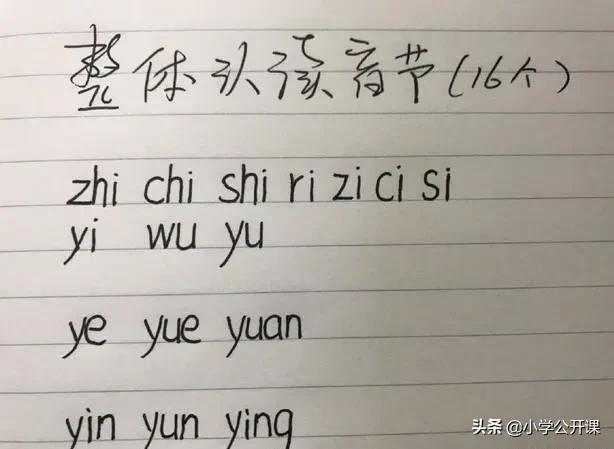 整体认读音节(16个)
zhi chi shi ri zi ci si
yi wu yu
ye yue yuan
yin yun ying
头条 @小学公开课